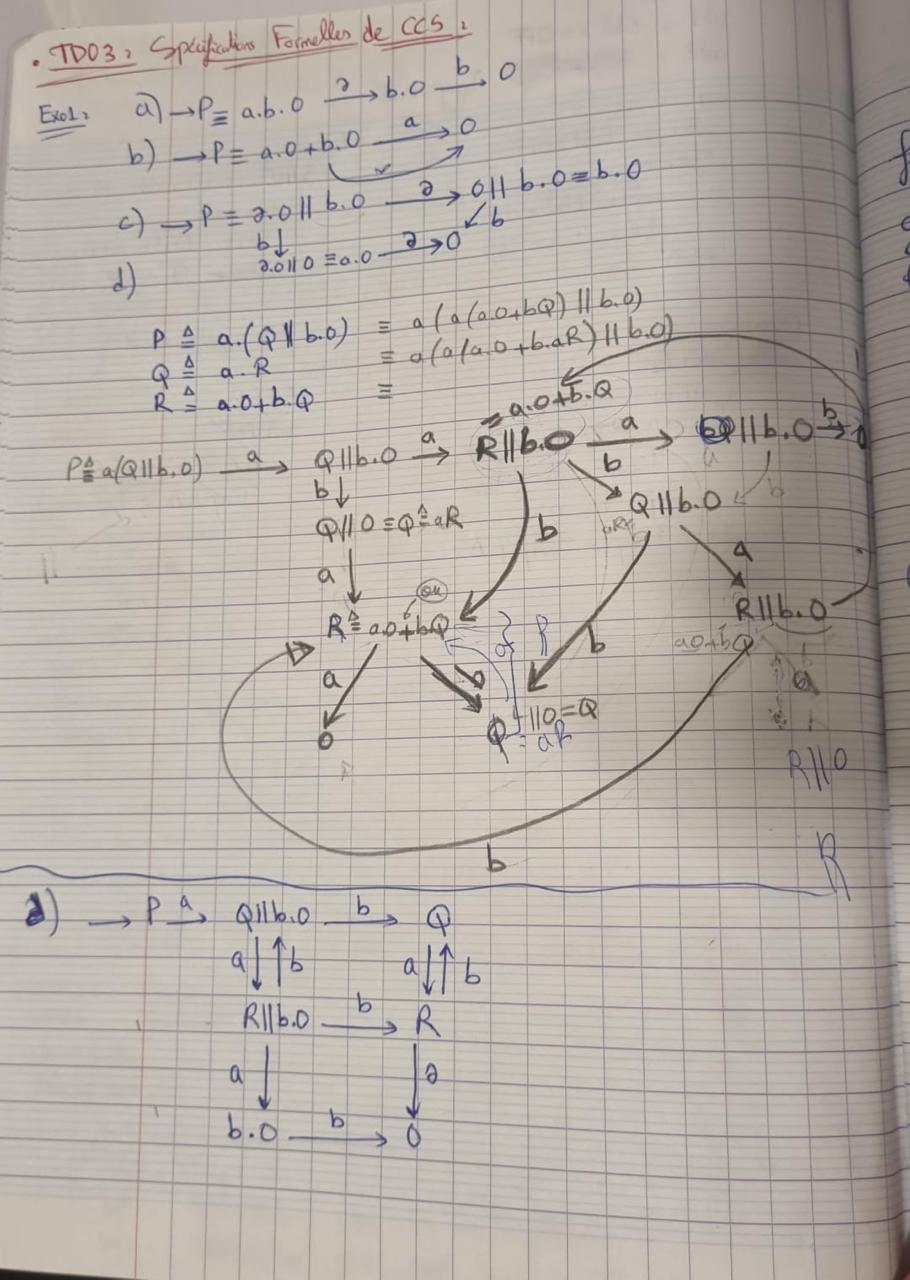 . TD03 : Spécifications Formelles de CCS :
Exo1: a) → P ≡ a.b.0 —a→ b.0 —b→ 0
b) → P ≡ a.0+b.0 —a→ 0
c) → P ≡ a.0 || b.0 —a→ 0 || b.0 ≡ b.0
b↓ ↙b
a.0||0 ≡ a.0 —a→ 0
d)
P ≜ a.(Q || b.0) ≡ a(a(a.0+bQ) || b.0)
Q ≜ a.R ≡ a(a(a.0+b.aR) || b.0)
R ≜ a.0+b.Q ≡
= a.0+b.Q
P≜a(Q||b.0) —a→ Q||b.0 —a→ R||b.0 —a→ ||b.0 —b→
b↓ b Q||b.0 b
Q||0 ≡ Q ≜ aR b
a↓ ou a
R ≜ a.0+bQ R b R||b.0
a.0+bQ
a b
0 Q ||0=Q
= aR
R||0
b R
d) → P —a→ Q||b.0 —b→ Q
a↓↑b a↓↑b
R||b.0 —b→ R
a↓ ↓a
b.0 —b→ 0